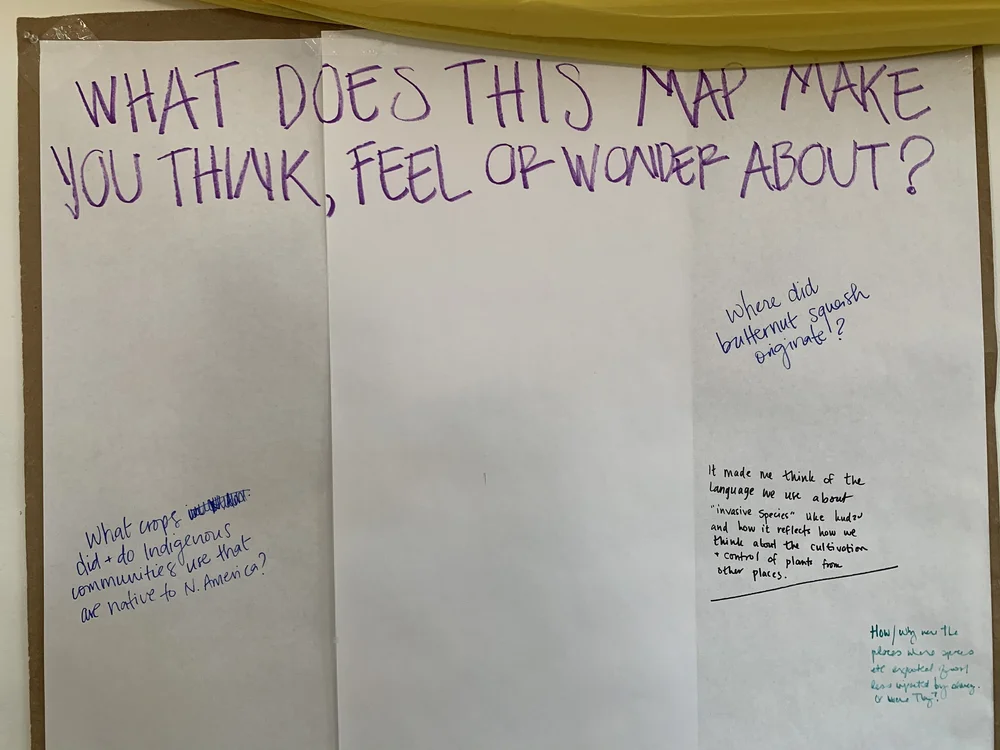 WHAT DOES THIS MAP MAKE
YOU THINK, FEEL OR WONDER ABOUT?
Where did
butternut squash
originate?
What crops
did + do Indigenous
communities use that
are native to N. America?
It made me think of the
Language we use about
"invasive species" like kudzu
and how it reflects how we
think about the cultivation
+ control of plants from
other places.
How/why were the
places where spices
etc exported from
less impacted by
or were they?